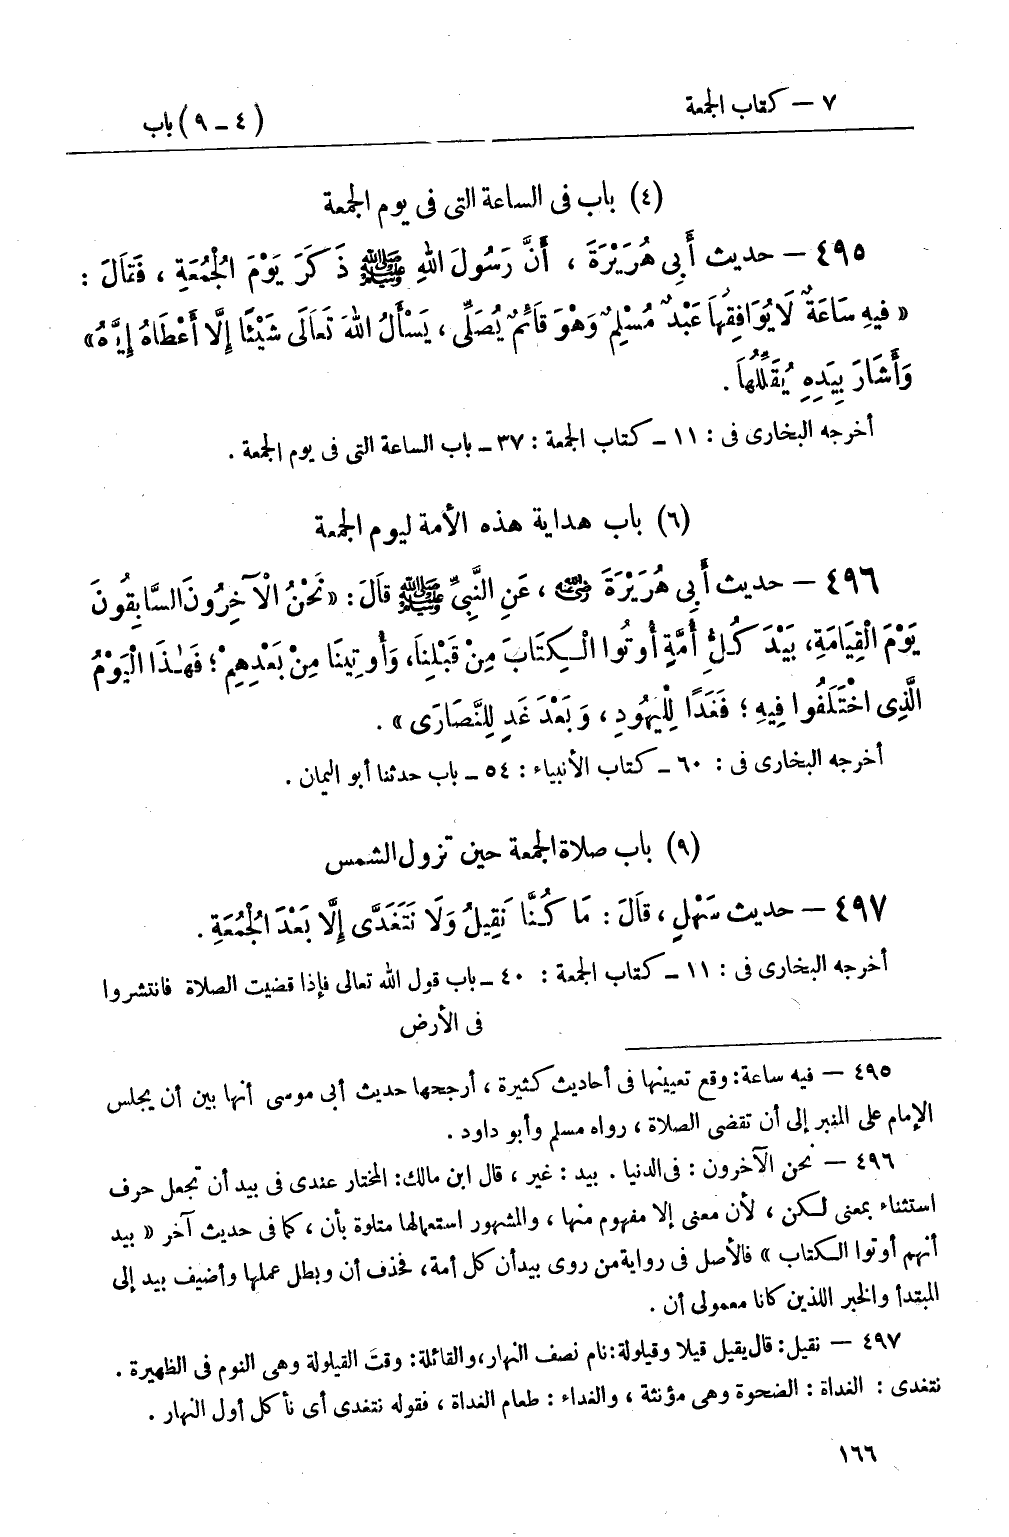 ٧ — كتاب الجمعة
(٤ – ٩) باب
(٤) باب فى الساعة التى فى يوم الجمعة
٤٩٥ — حديث أَبِى هُرَيْرَةَ ، أَنَّ رَسُولَ اللهِ ﷺ ذَكَرَ يَوْمَ الْجُمُعَةِ ، فَقَالَ :
« فِيهِ سَاعَةٌ لَا يُوَافِقُهَا عَبْدٌ مُسْلِمٌ وَهُوَ قَائِمٌ يُصَلِّى ، يَسْأَلُ اللهَ تَعَالَى شَيْئًا إِلَّا أَعْطَاهُ إِيَّاهُ »
وَأَشَارَ بِيَدِهِ يُقَلِّلُهَا .
أخرجه البخارى فى : ١١ – كتاب الجمعة : ٣٧ – باب الساعة التى فى يوم الجمعة .
(٦) باب هداية هذه الأمة ليوم الجمعة
٤٩٦ — حديث أَبِى هُرَيْرَةَ رضي الله عنه ، عَنِ النَّبِىِّ ﷺ قَالَ : « نَحْنُ الْآخِرُونَ السَّابِقُونَ
يَوْمَ الْقِيَامَةِ ، بَيْدَ كُلِّ أُمَّةٍ أُوتُوا الْكِتَابَ مِنْ قَبْلِنَا ، وَأُوتِينَا مِنْ بَعْدِهِمْ ؛ فَهٰذَا الْيَوْمُ
الَّذِى اخْتَلَفُوا فِيهِ ؛ فَغَدًا لِلْيَهُودِ ، وَبَعْدَ غَدٍ لِلنَّصَارَى » .
أخرجه البخارى فى : ٦٠ – كتاب الأنبياء : ٥٤ – باب حدثنا أبو اليمان .
(٩) باب صلاة الجمعة حين تزول الشمس
٤٩٧ — حديث سَهْلٍ ، قَالَ : مَا كُنَّا نَقِيلُ وَلَا نَتَغَدَّى إِلَّا بَعْدَ الْجُمُعَةِ .
أخرجه البخارى فى : ١١ – كتاب الجمعة : ٤٠ – باب قول الله تعالى فإذا قضيت الصلاة فانتشروا
فى الأرض
٤٩٥ — فيه ساعة : وقع تعيينها فى أحاديث كثيرة ، أرجحها حديث أبى موسى أنها بين أن يجلس
الإمام على المنبر إلى أن تقضى الصلاة ، رواه مسلم وأبو داود .
٤٩٦ — نحن الآخرون : فى الدنيا . بيد : غير ، قال ابن مالك : المختار عندى فى بيد أن تجعل حرف
استثناء بمعنى لكن ، لأن معنى إلا مفهوم منها ، والمشهور استعمالها متلوة بأن ، كما فى حديث آخر « بيد
أنهم أوتوا الكتاب » فالأصل فى رواية من روى بيد أن كل أمة ، فحذف أن وبطل عملها وأضيف بيد إلى
المبتدأ والخبر اللذين كانا معمولى أن .
٤٩٧ — نقيل : قال يقيل قيلا وقيلولة : نام نصف النهار ، والقائلة : وقت القيلولة وهى النوم فى الظهيرة .
نتغدى : الغداة : الضحوة وهى مؤنثة ، والغداء : طعام الغداة ، فقوله نتغدى أى نأكل أول النهار .
١٦٦